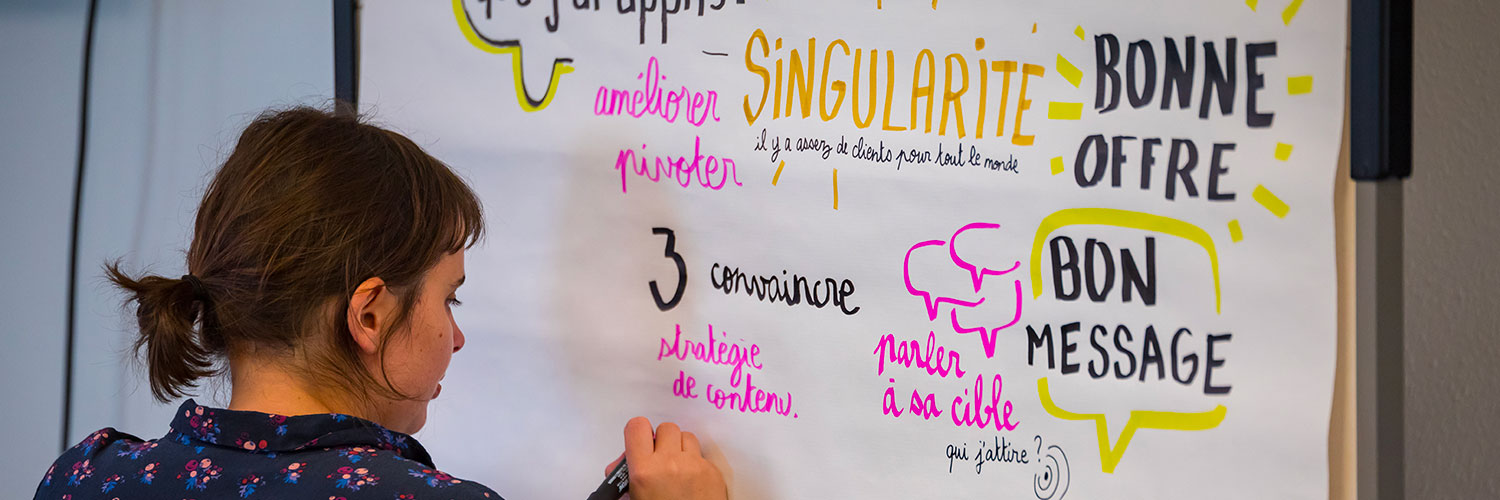 que j'ai appris.
améliorer
pivoter
SiNGULARiTÉ
il y a assez de clients pour tout le monde
BONNE
OFFRE
3 convaincre
stratégie
de contenu.
parler
à sa cible
qui j'attire ?
BON
MESSAGE